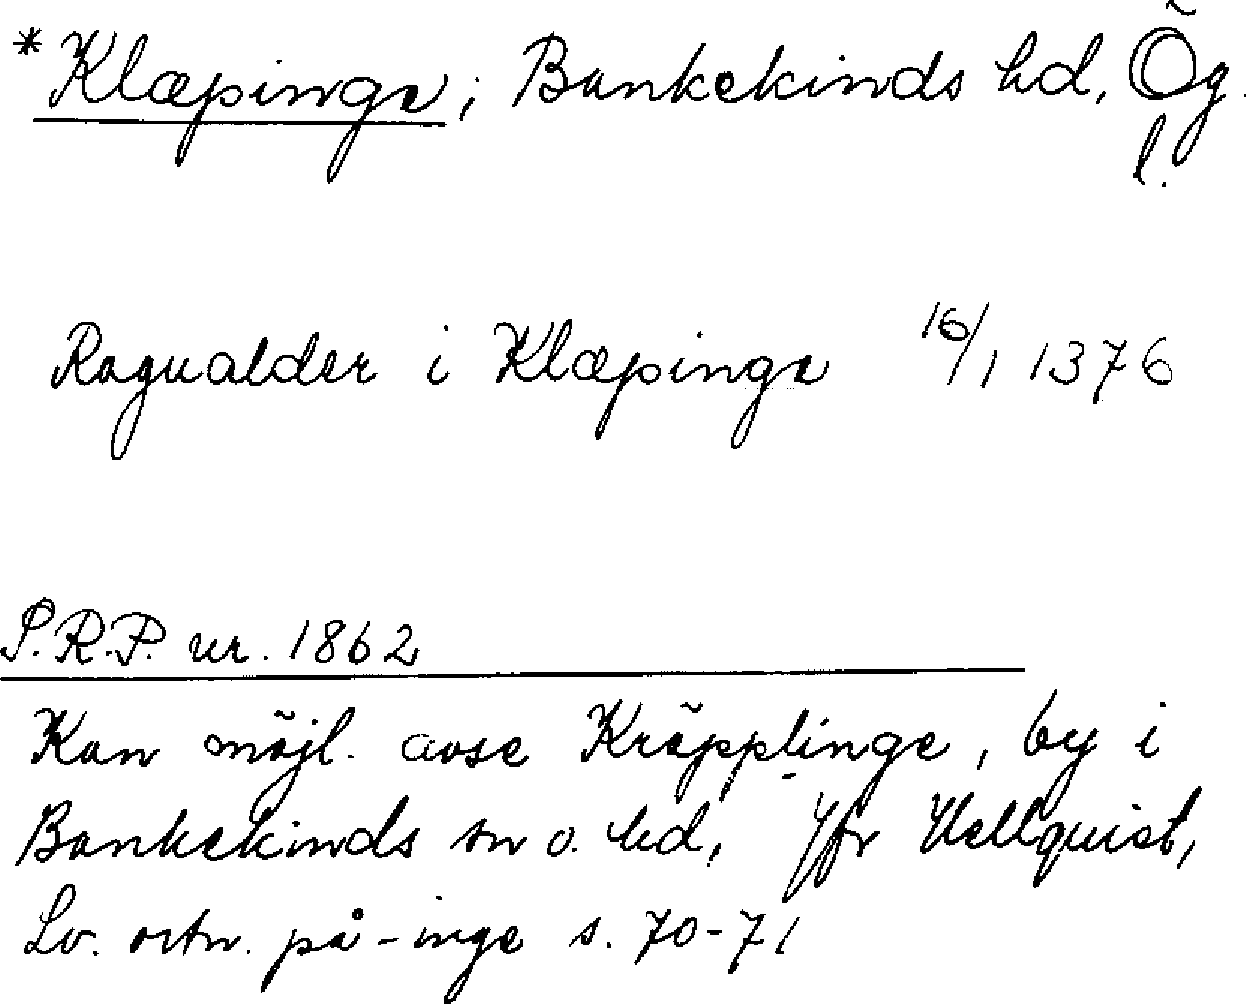 *Klæpinge, Bankekinds hd, Ög.
l.
Ragualder i Klæpinge 16/1 1376
S.R.P. nr. 1862
Kan möjl. avse Kräpplinge, by i
Bankekinds sn o. hd, Jfr Hellquist,
Sv. ortn. på -inge s. 70-71